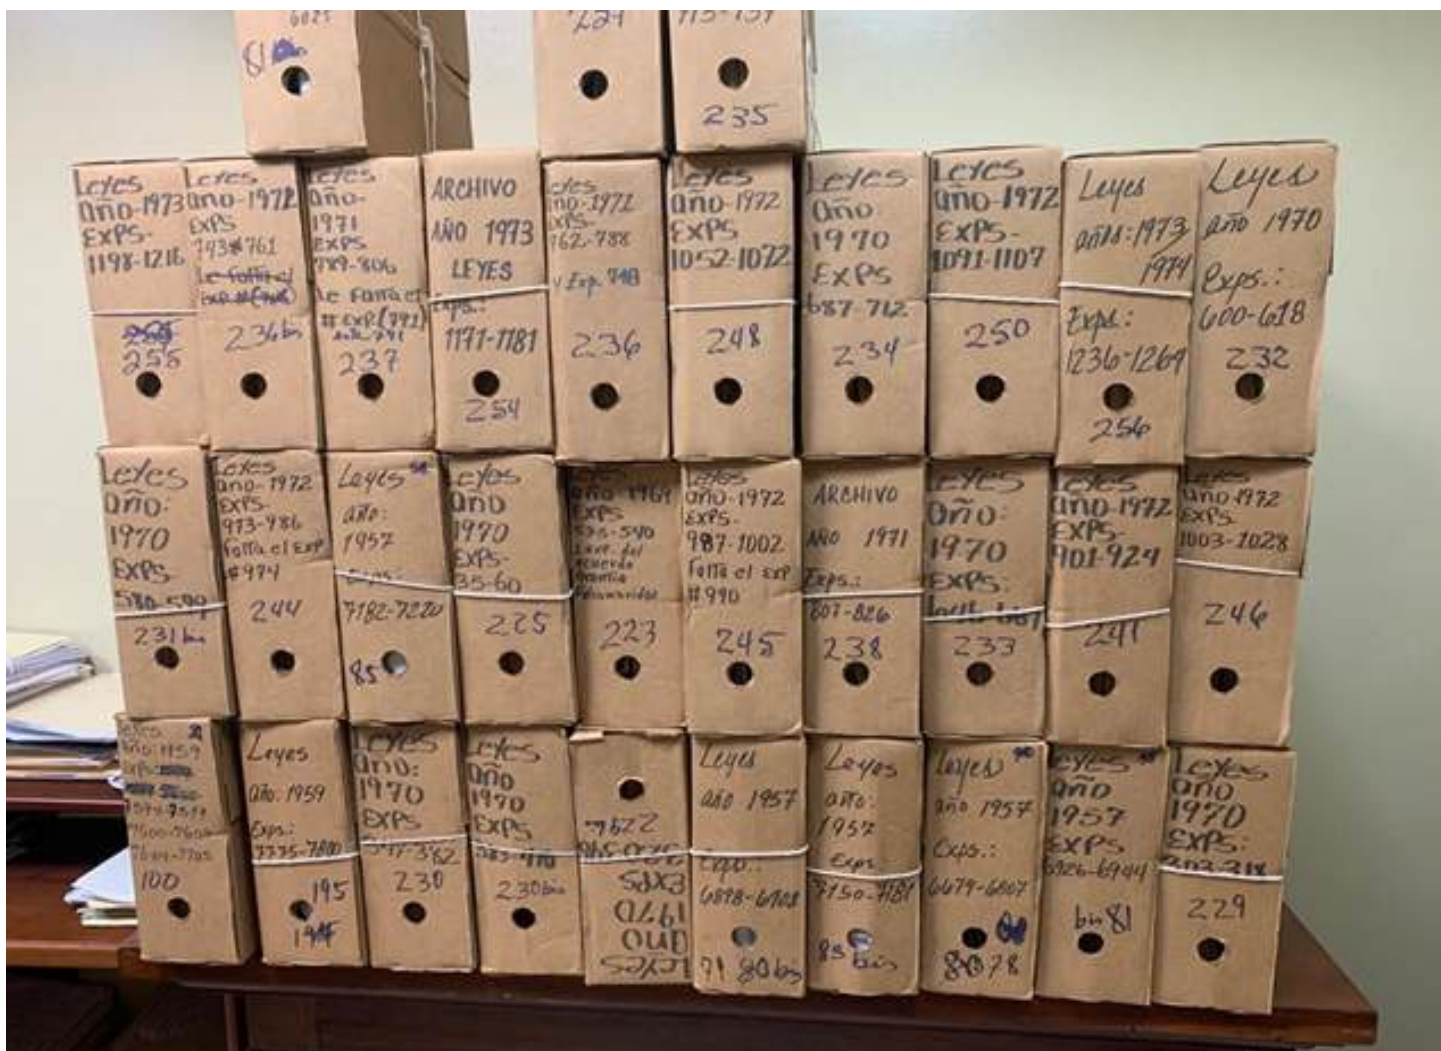 81
235
Leyes
año-1973
EXPS-
1198-1216
255
Leyes
año-1972
EXPS
743#761
Le falta el
236 bis
Leyes
año-
1971
EXPS
789-806
Le falta el
# EXP.(791)
237
ARCHIVO
AÑO 1973
LEYES
Exps.:
1171-1181
254
Leyes
762-788
y Exp. 748
236
Leyes
año-1972
EXPS
248
Leyes
año
1970
EXPS
687-712
234
Leyes
año-1972
EXPS-
1091-1107
250
Leyes
años:1973
1974
Exps.:
1236-1264
256
Leyes
año 1970
Exps.:
600-618
232
Leyes
año:
1970
EXPS-
580-599
231 bis
Leyes
año-1972
EXPS-
973-986
Falta el Exp
#974
244
Leyes
año:
1957
Exps:
7182-7220
85
Leyes
año
1970
EXPS-
35-60
225
EXPS
223
Leyes
año-1972
EXPS-
987-1002
Falta el EXP
#990
245
ARCHIVO
AÑO 1971
Exps.:
807-826
238
Leyes
año:
1970
EXPS-
233
Leyes
año-1972
EXPS-
901-924
241
Leyes
año 1972
EXPS-
1003-1028
246
Leyes
año:1959
7600-7603
100
Leyes
año: 1959
Exps.:
7775-7800
195
Leyes
año:
1970
EXPS
230
Leyes
año
1970
EXPS
230 bis
Leyes
año
1970
EXPS
Leyes
año 1957
Exps:
80 bis
Leyes
año:
1957
Exps
7150-7181
85 bis
Leyes
año 1957
Exps.:
6679-6807
78
Leyes
año
1957
EXPS
6926-6944
bis 81
Leyes
año
1970
EXPS:
303-318
229